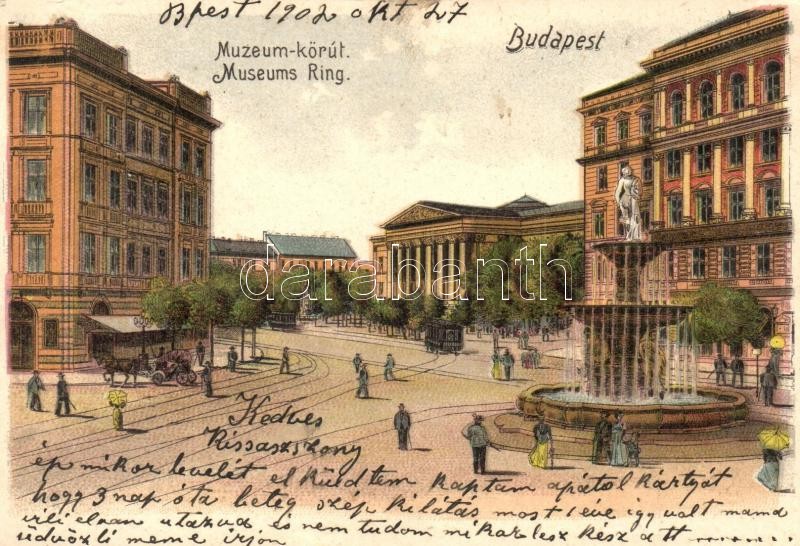 Bpest 1902 okt 27
Muzeum-körút.
Museums Ring.
Budapest
darabanth
Kedves
Kissasszony
ép mikor levelét el küldtem kaptam apátol kártyát
hogy 3 nap óta beteg szép kilátás most 1 éve igy volt mama
el van utazva és nem tudom mikor lesz kész a tt
üdvözli meme irjon